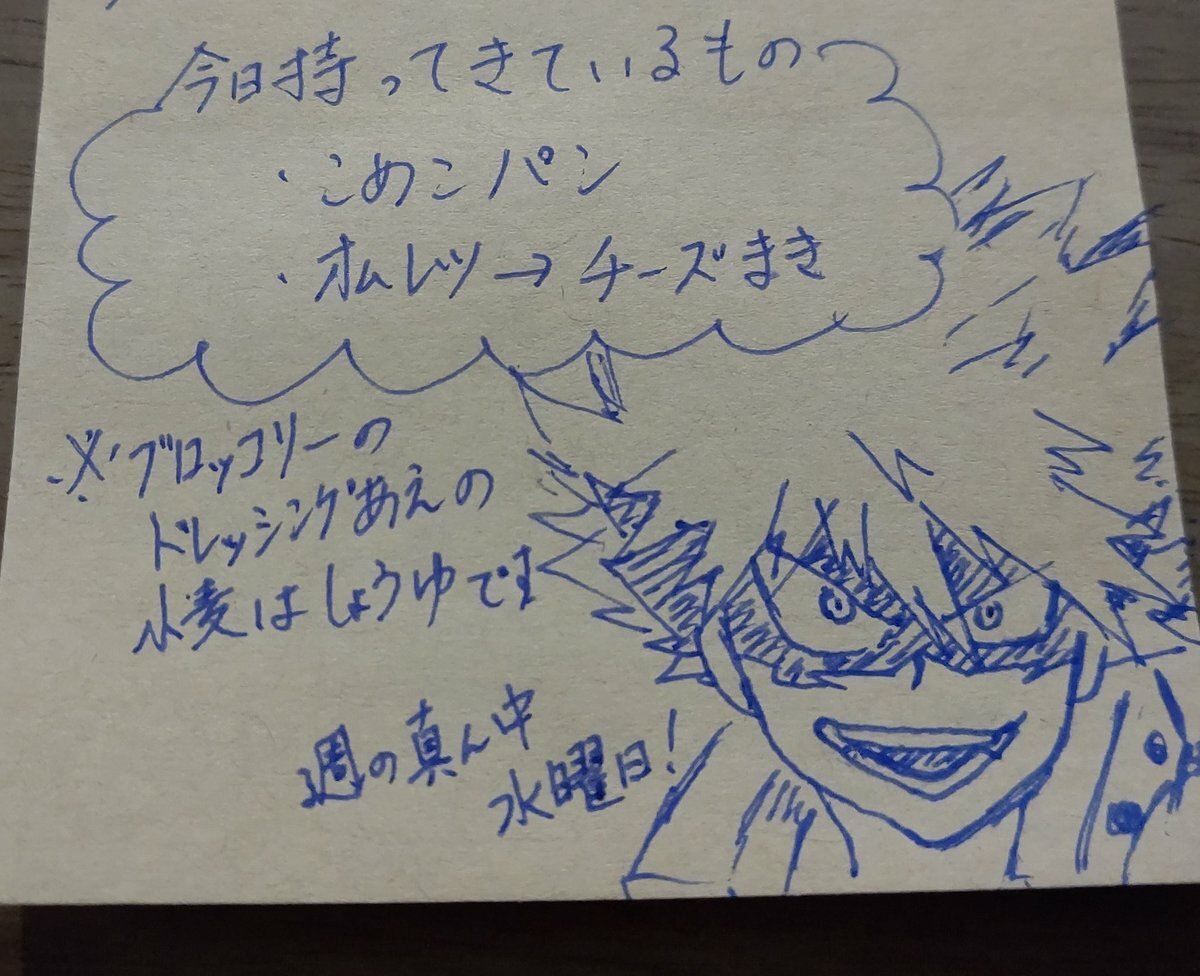 今日持ってきているもの
・こめこパン
・オムレツ→チーズまき
※ブロッコリーの
ドレッシングあえの
小麦はしょうゆです
週の真ん中
水曜日!